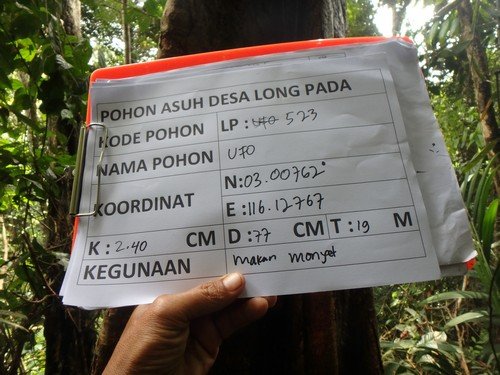 POHON ASUH DESA LONG PADA
KODE POHON LP : UFO 523
NAMA POHON UFO
KOORDINAT N:03.00762°
E:116.12767
K : 2.40 CM D:77 CM T:19 M
KEGUNAAN makan monyet